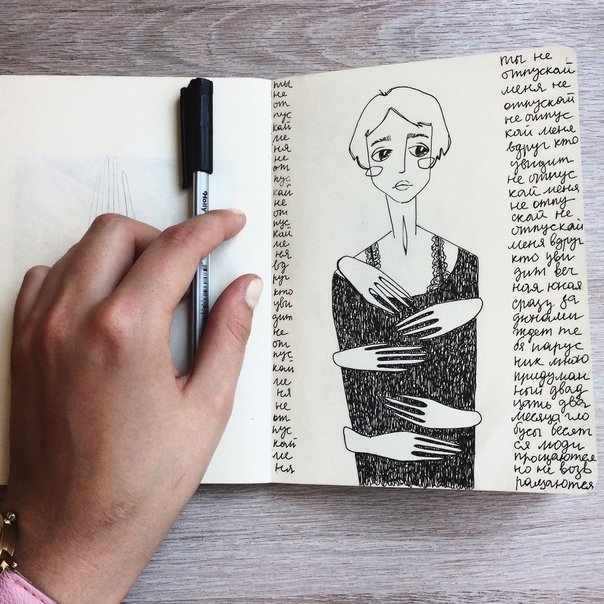 ты
не
от
пус
кай
ме
ня
не
от
пус
кай
не
от
пус
кай
ме
ня
вд
руг
кто
уви
дит
не
от
пус
кай
ме
ня
не
от
пус
кай
ме
ня
ты не
отпускай
меня не
отпускай
не отпус
кай меня
вдруг кто
увидит
не отпус
кай меня
не отпу
скай не
отпускай
меня вдруг
кто уви
дит веч
ная юная
сразу за
дюнами
ждет те
бя парус
ник мною
придуман
ный двад
цать два
месяца гло
бусы бесят
ся люди
прощаются
но не возв
ращаются
Holly